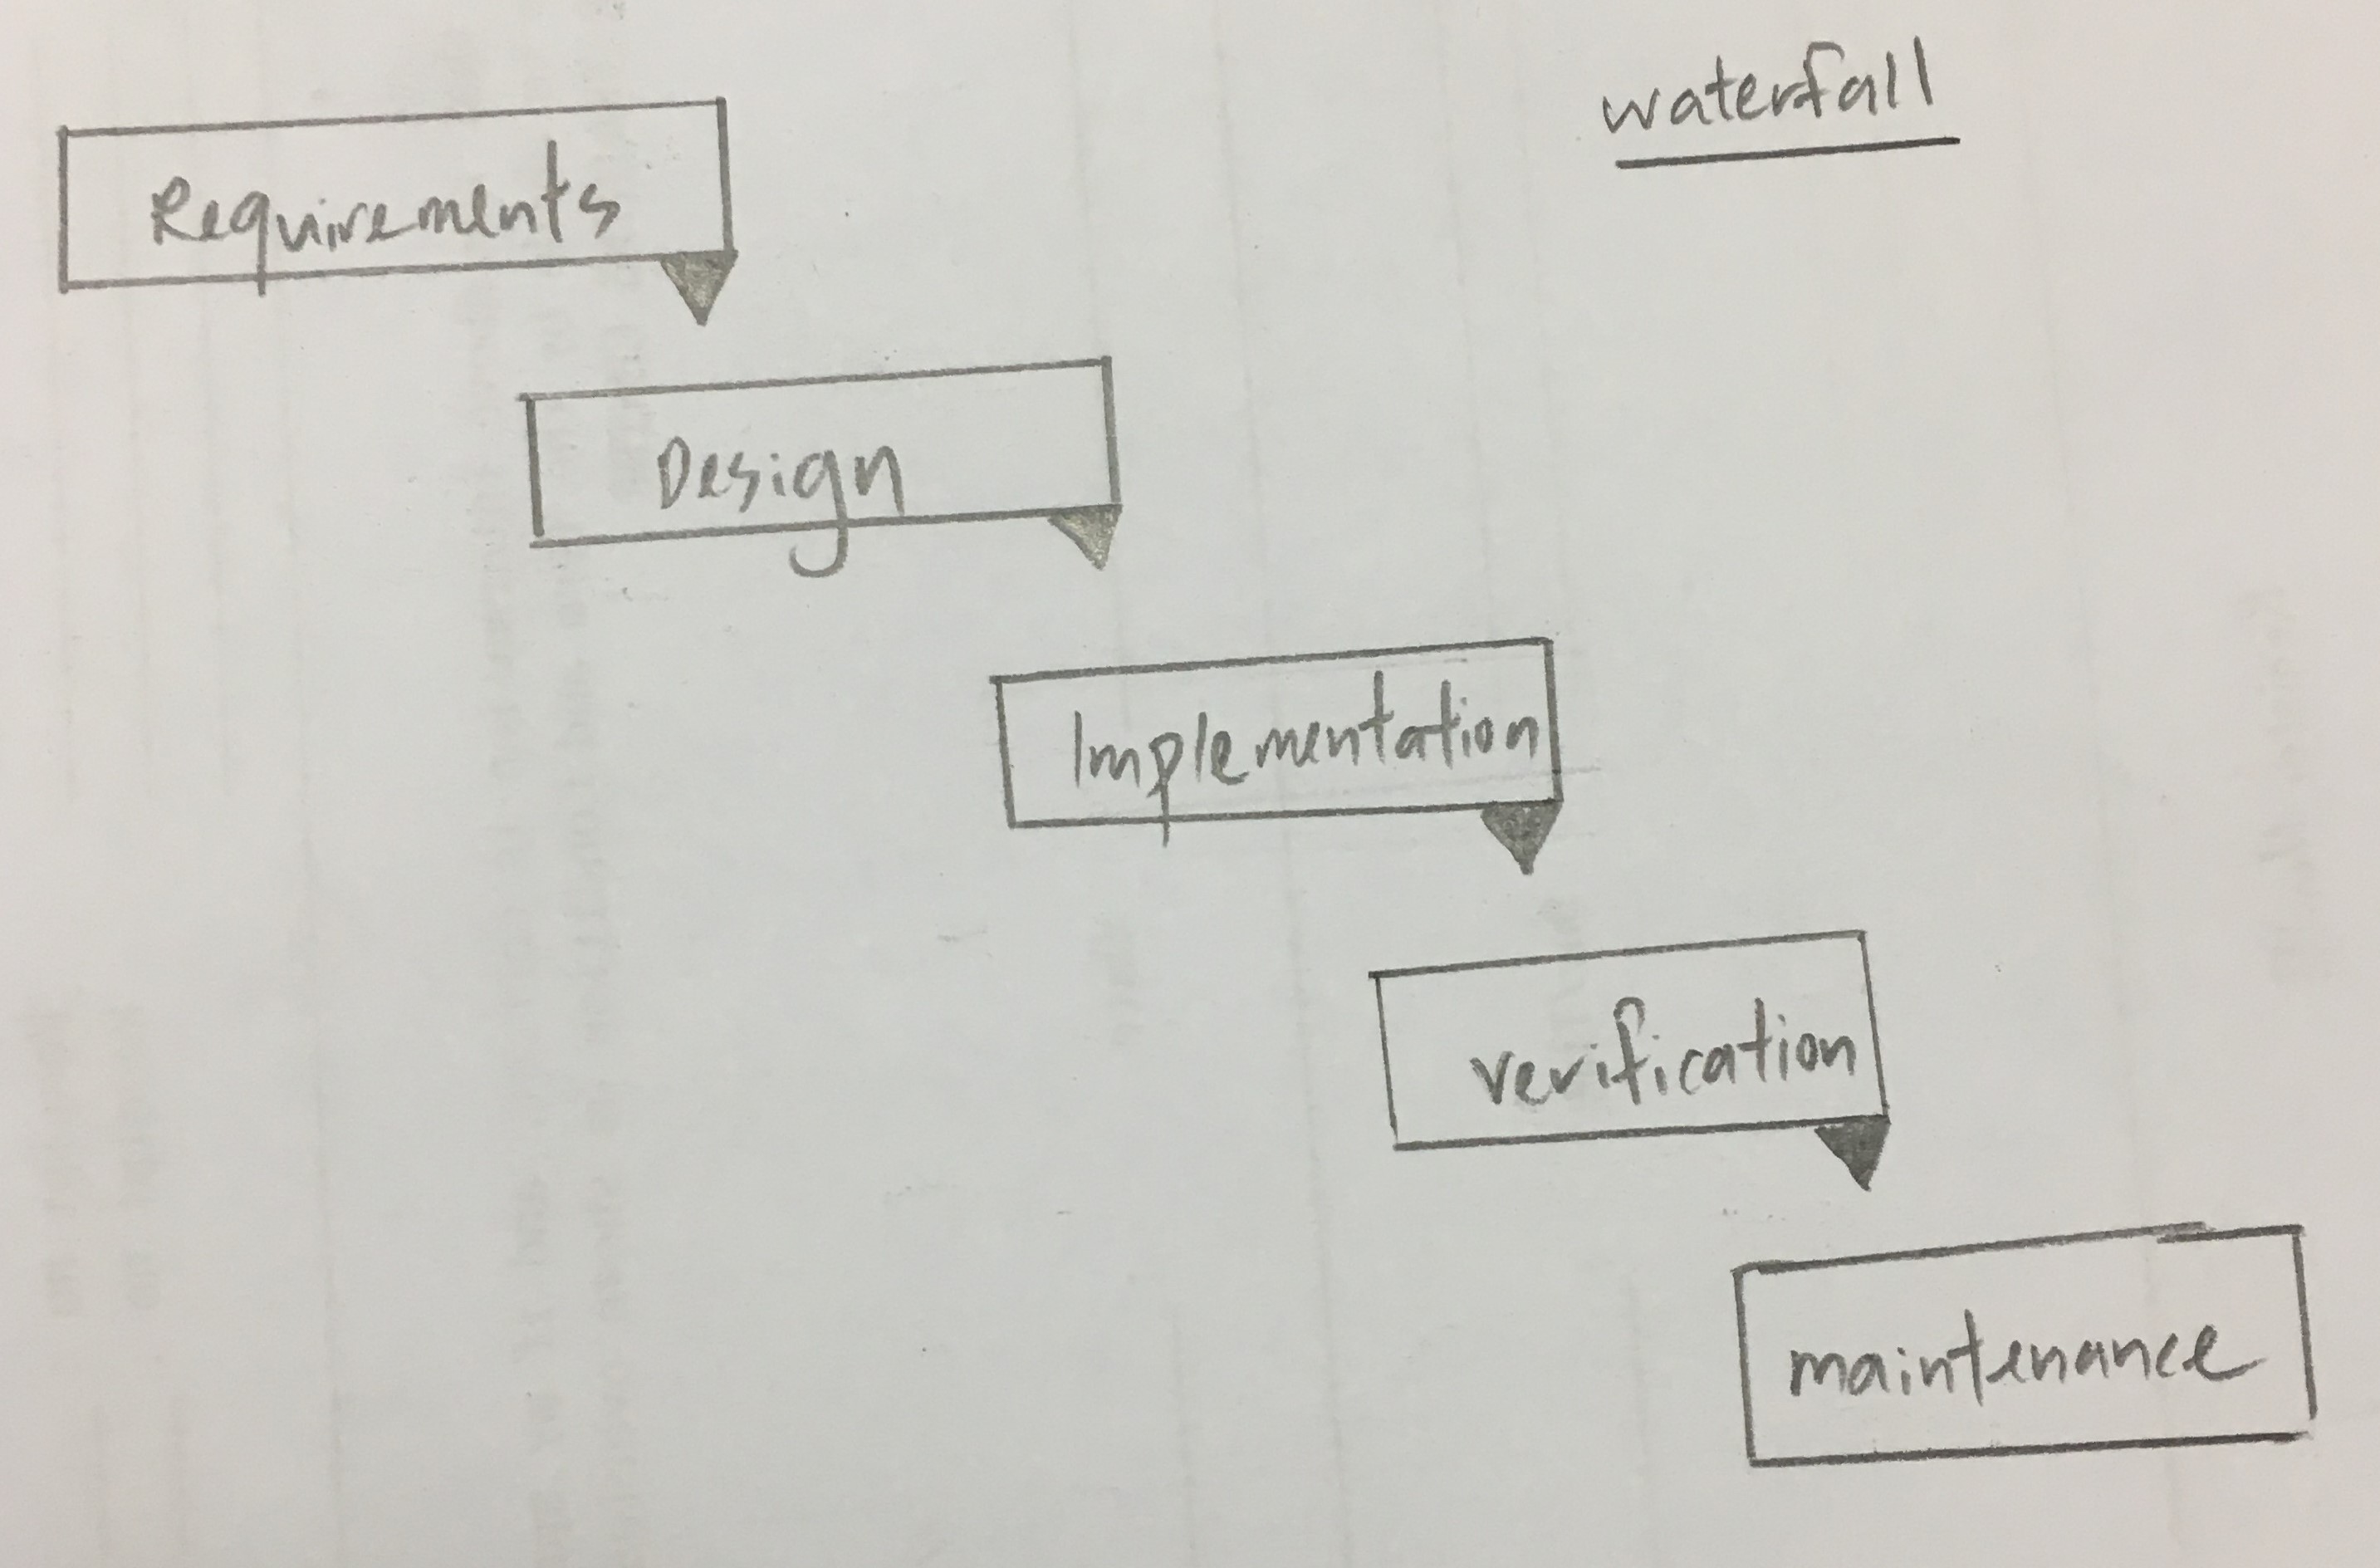 waterfall
Requirements
Design
Implementation
verification
maintenance